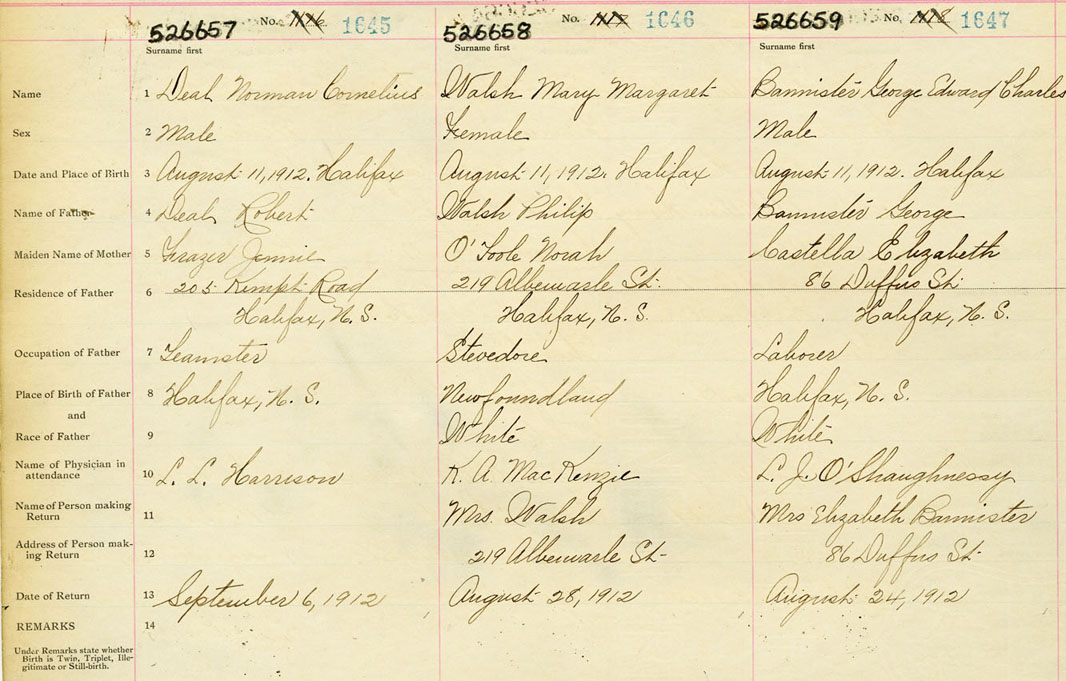 526657 No. 1645 526658 No. 1646 526659 No. 1647
Surname first Surname first Surname first
Name 1 Deal Norman Cornelius Walsh Mary Margaret Bannister George Edward Charles
Sex 2 Male Female Male
Date and Place of Birth 3 August 11, 1912. Halifax August 11, 1912. Halifax August 11, 1912. Halifax
Name of Father 4 Deal Robert Walsh Philip Bannister George
Maiden Name of Mother 5 Frazer Jennie O'Toole Norah Castella Elizabeth
Residence of Father 6 205 Kempt Road 219 Albemarle St. 86 Duffus St.
Halifax, N. S. Halifax, N. S. Halifax, N. S.
Occupation of Father 7 Teamster Stevedore Laborer
Place of Birth of Father 8 Halifax, N. S. Newfoundland Halifax, N. S.
and
Race of Father 9 White White
Name of Physician in
attendance 10 L. L. Harrison K. A. MacKenzie L. J. O'Shaughnessy
Name of Person making
Return 11 Mrs. Walsh Mrs Elizabeth Bannister
Address of Person mak-
ing Return 12 219 Albemarle St 86 Duffus St
Date of Return 13 September 6, 1912 August 28, 1912 August 24, 1912
REMARKS 14
Under Remarks state whether
Birth is Twin, Triplet, Ille-
gitimate or Still-birth.